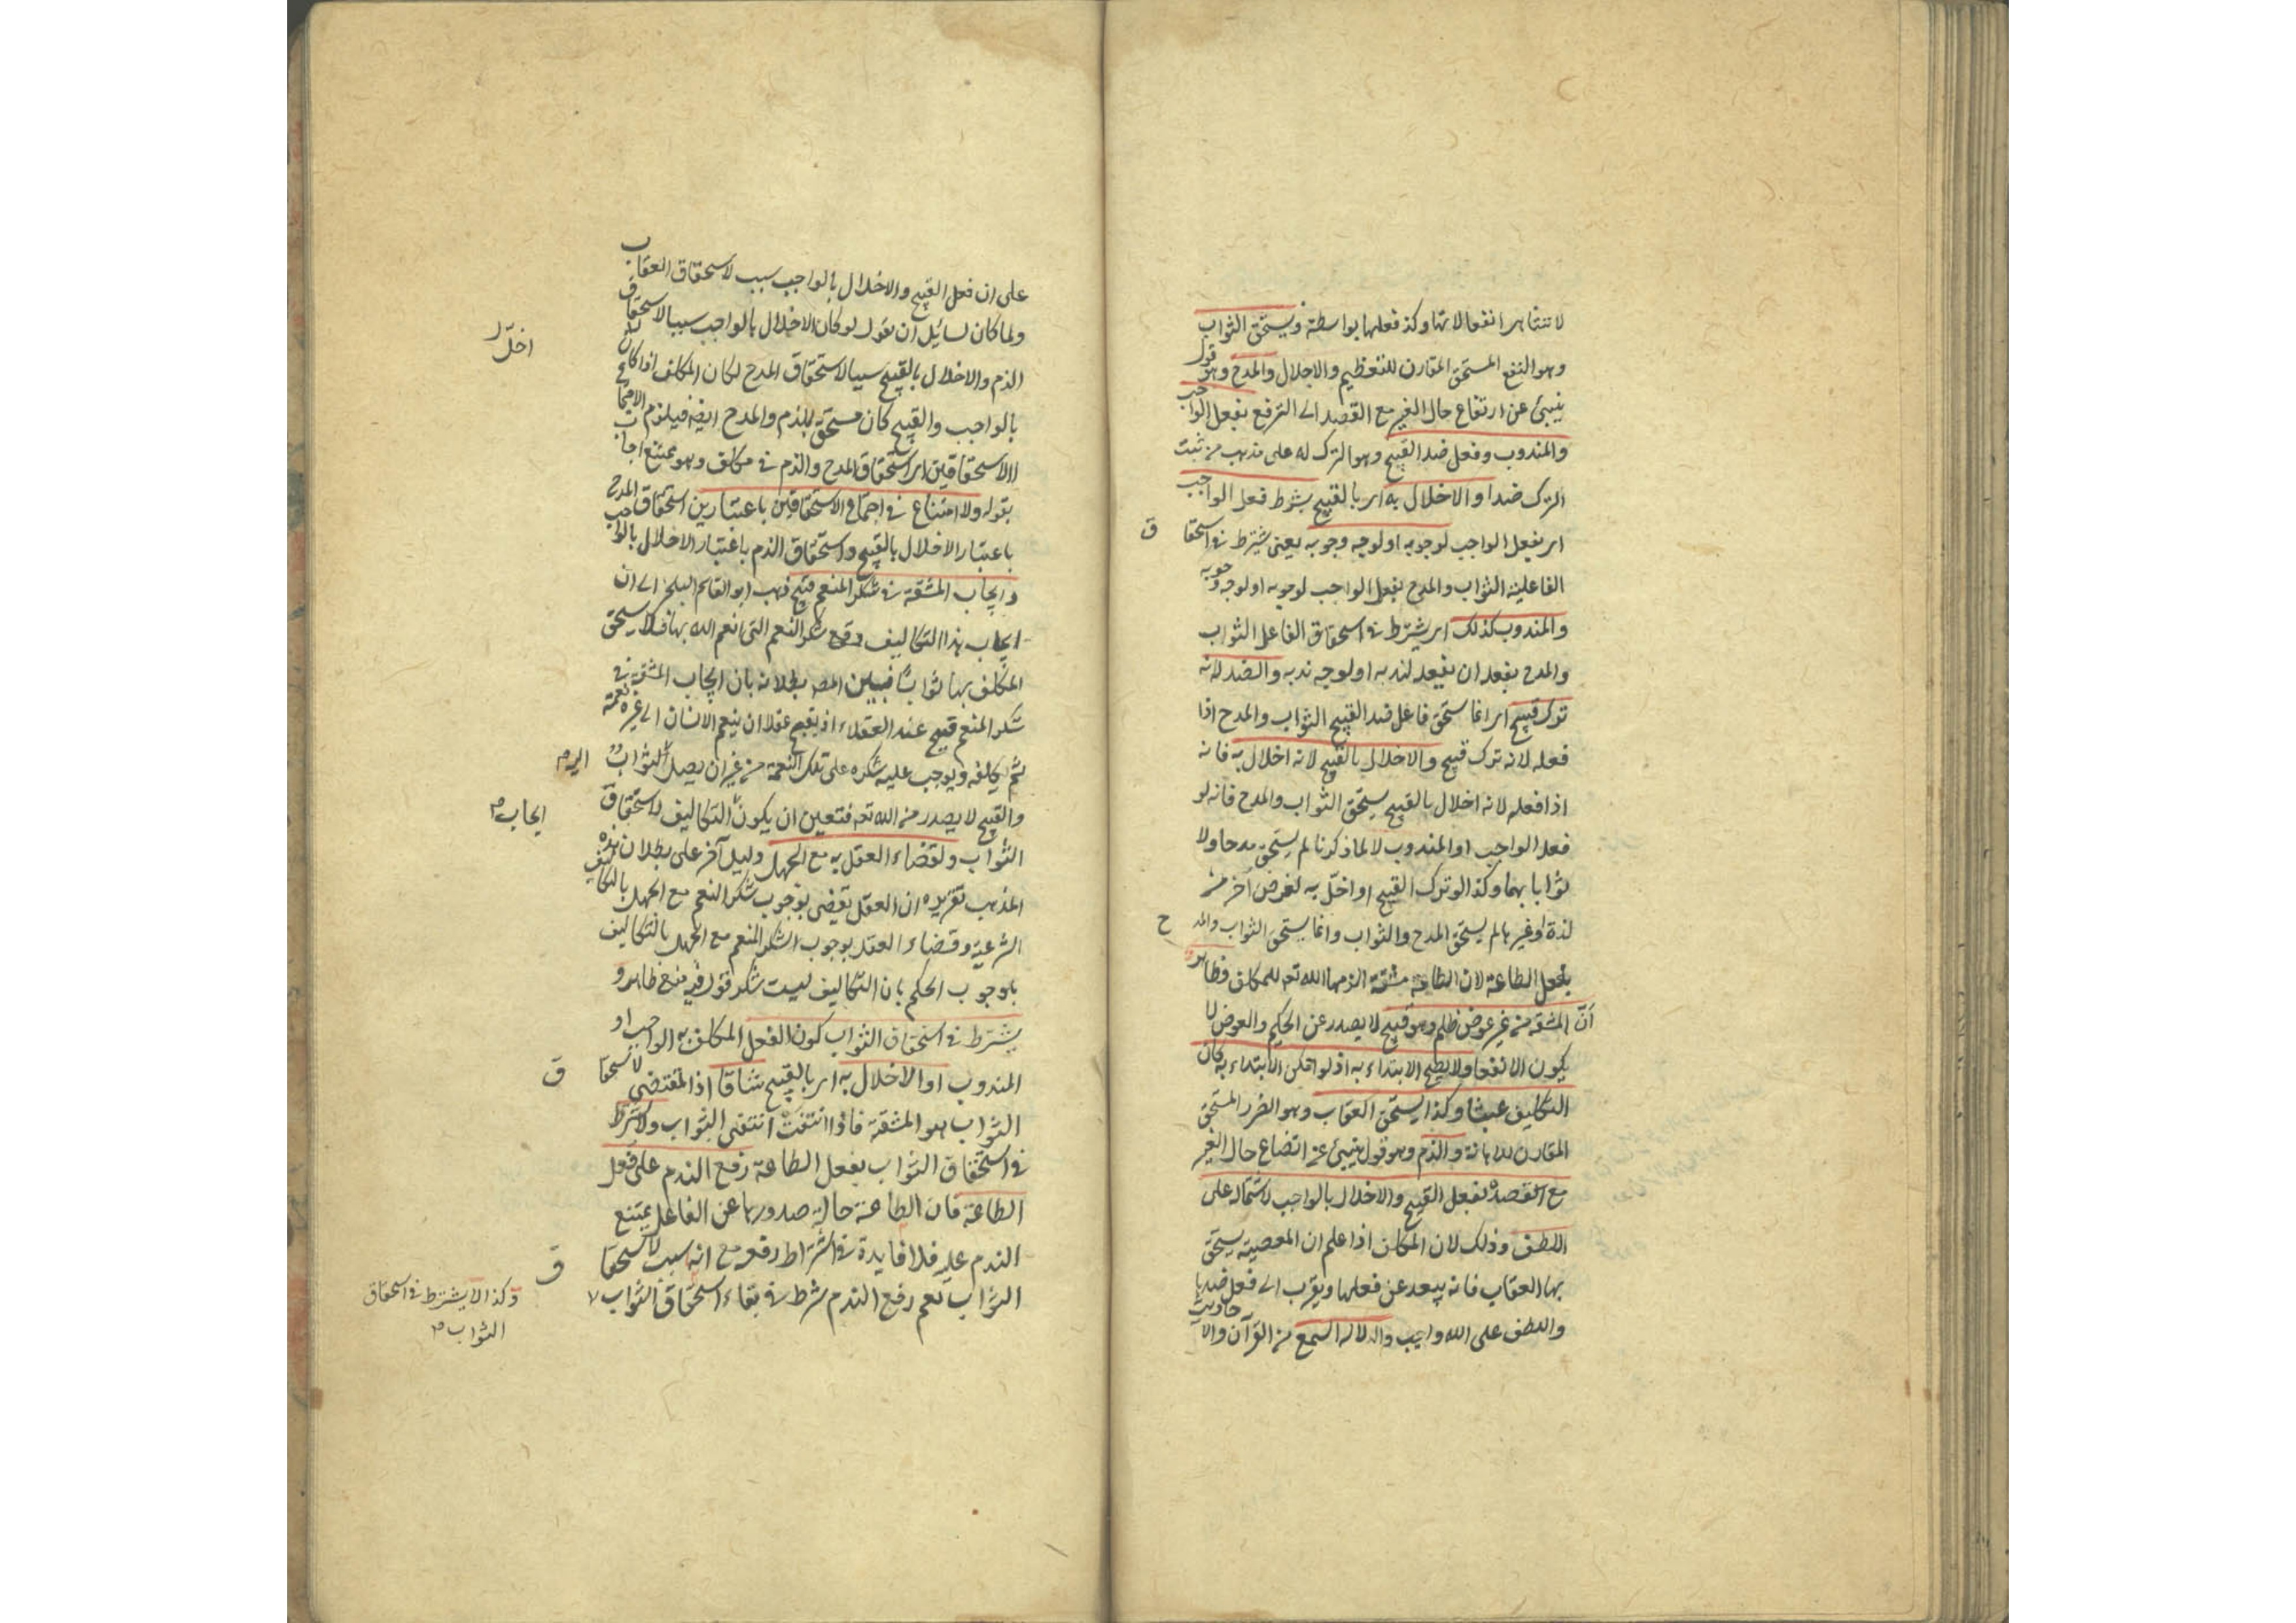 لا تتناهى انفعالاتها وكذا فعلها بواسطة ويستحق الثواب
وهو النفع المستحق المقارن للتعظيم والاجلال والمدح وهو قول
ينبئ عن ارتفاع حال الغير مع القصد الى الترفع بفعل الواجب
والمندوب وفعل ضد القبيح وهو الترك له على مذهب من يثبت
الترك ضدا والاخلال به اى بالقبيح بشرط فعل الواجب
اى يفعل الواجب لوجوبه او لوجه وجوبه يعنى يشترط فى استحقاق
الفاعل الثواب والمدح بفعل الواجب لوجوبه او لوجه وجوبه
والمندوب كذلك اى يشترط فى استحقاق الفاعل الثواب
والمدح بفعله ان يفعله لندبه او لوجه ندبه والضد لانه
ترك قبيح اى انما يستحق فاعل ضد القبيح الثواب والمدح اذا
فعله لانه ترك قبيح والاخلال بالقبيح لانه اخلال به فانه
اذا فعله لانه اخلال بالقبيح يستحق الثواب والمدح فانه لو
فعل الواجب او المندوب لا لما ذكرنا لم يستحق مدحا ولا
ثوابا بهما وكذا لو ترك القبيح او اخلّ به لغرض آخر من
لذة او غيرها لم يستحق المدح والثواب وانما يستحق الثواب والمدح
بفعل الطاعة لان الطاعة مشقة الزمها الله تعه للمكلف فظاهر
أنّ المشقة من غير عوض ظلم وهو قبيح لا يصدر عن الحكيم والعوض لا
يكون الا نفعا ولا يصح الابتداء به اذ لو امكن الابتداء به كان
التكليف عبثا وكذا يستحق العقاب وهو الضرر المستحق
المقارن للاهانة والذم وهو قول ينبئ عن اتضاع حال الغير
مع القصد بفعل القبيح والاخلال بالواجب لاشتماله على
اللطف وذلك لان المكلف اذا علم ان المعصية يستحق
بها العقاب فانه يبعد عن فعلها ويقرب الى فعل ضدها
واللطف على الله واجب والدلالة السمع من القرآن والاحاديث
على ان فعل القبيح والاخلال بالواجب سبب لاستحقاق العقاب
ولما كان لسائل ان يقول لو كان الاخلال بالواجب سببا لاستحقاق
الذم والاخلال بالقبيح سببا لاستحقاق المدح لكان المكلف اذا
اخلّ
بالواجب والقبيح كان مستحق للذم والمدح ايضا فيلزم الاجتماع
الاستحقاقين اى استحقاق المدح والذم فى مكلف وهو ممتنع اجاب
بقوله ولا امتناع فى اجتماع الاستحقاقين باعتبارين استحقاق المدح
باعتبار الاخلال بالقبيح واستحقاق الذم باعتبار الاخلال بالواجب
وايجاب المشقة فى شكر المنعم قبيح ذهب ابو القاسم البلخى الى ان
ايجاب هذا التكاليف وقع شكر النعم التى انعم الله بها فلا يستحق
المكلف بها ثوابا فبيّن المص بطلانه بان ايجاب المشقة فى
شكر المنعم قبيح عند العقلاء اذ يقبح عقلا ان ينعم الانسان الى غيره نعمة
ثم يكلفه ويوجب عليه شكره على تلك النعمة من غير ان يصل الثواب
اليه
والقبيح لا يصدر من الله تعه فتعين ان يكون التكاليف لاستحقاق
ايجاب
الثواب ولقضاء العقل به مع الجهل دليل آخر على بطلان هذه
المذهب تقريره ان العقل يقضى بوجوب شكر النعم مع الجهل بالتكاليف
الشرعية وقضاء العقل بوجوب الشكر المنعم مع الجهل بالتكاليف
باوجوب الحكم بان التكاليف ليست شكر فقول فيه منع ظاهر و
يشترط فى استحقاق الثواب كون الفعل المكلف به الواجب او
المندوب او الاخلال به اى بالقبيح شاقا اذ المقتضى لاستحقاق
الثواب هو المشقة فاذا انتفت انتفى الثواب ولا يشترط
فى استحقاق الثواب بفعل الطاعة رفع الندم على فعل
الطاعة فان الطاعة حالة صدورها عن الفاعل يمتنع
الندم عليه فلا فايدة فى اشتراط رفعه مع انه سبب لاستحقاق
الثواب نعم رفع الندم شرط فى بقاء استحقاق الثواب
وكذا لا يشترط فى استحقاق
الثواب